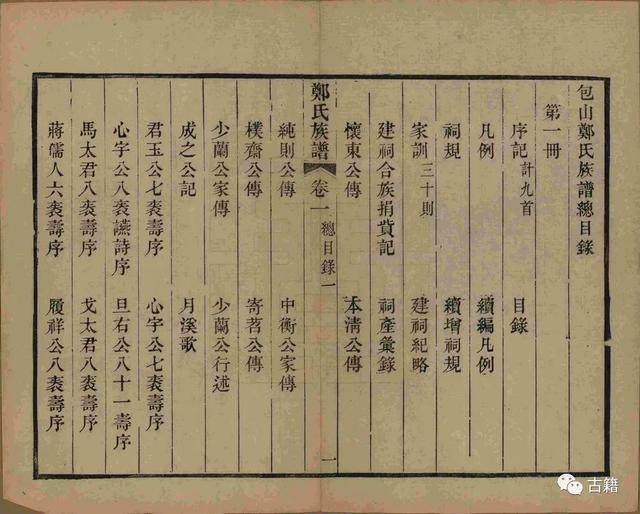 包山鄭氏族譜總目錄
第一冊
序記計九首 目錄
凡例 續編凡例
祠規 續增祠規
家訓三十則 建祠紀略
建祠合族捐貲記 祠產彙錄
懷東公傳 本清公傳
鄭氏族譜 卷一 總目錄一 一
純則公傳 中衡公家傳
樸齋公傳 寄茗公傳
少蘭公家傳 少蘭公行述
成之公記 月溪歌
君玉公七袠壽序 心字公七袠壽序
心字公八袠讌詩序 旦右公八十一壽序
馬太君八袠壽序 戈太君八袠壽序
蔣孺人六袠壽序 履祥公八袠壽序
古籍